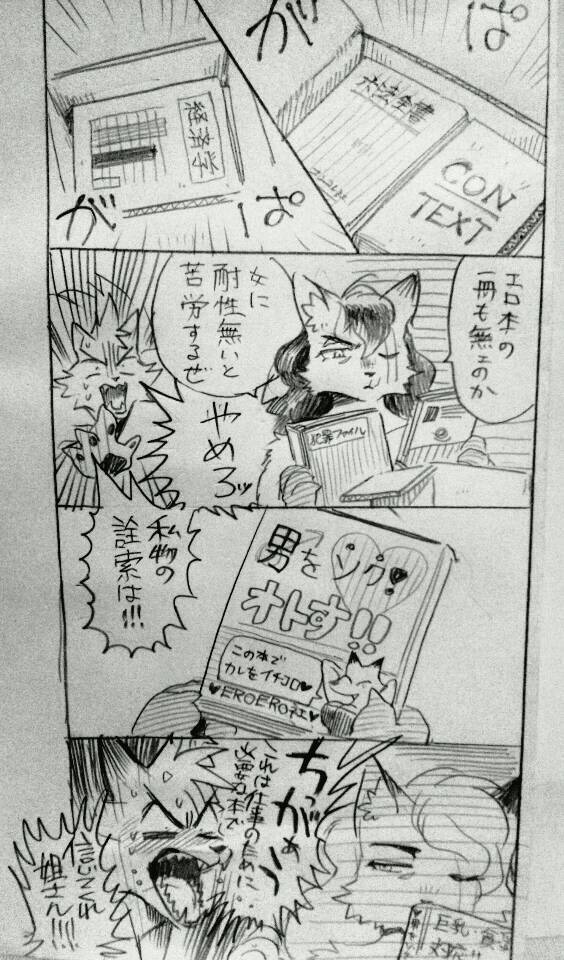 がぱ
六法全書
CON
TEXT
がぱ
エロ本の
一冊も無ェのか
女に
耐性無いと
苦労するぜ
犯罪ファイル
やめろッ
男を
オトす!!
この本で
カレをイチコロ♥
♥EROERO社♥
私物の
詮索は!!!
ちっがぁう
これは仕事のために…
必要な本で…
信じてくれ
姐さん!!!
巨乳・貧
対応!!